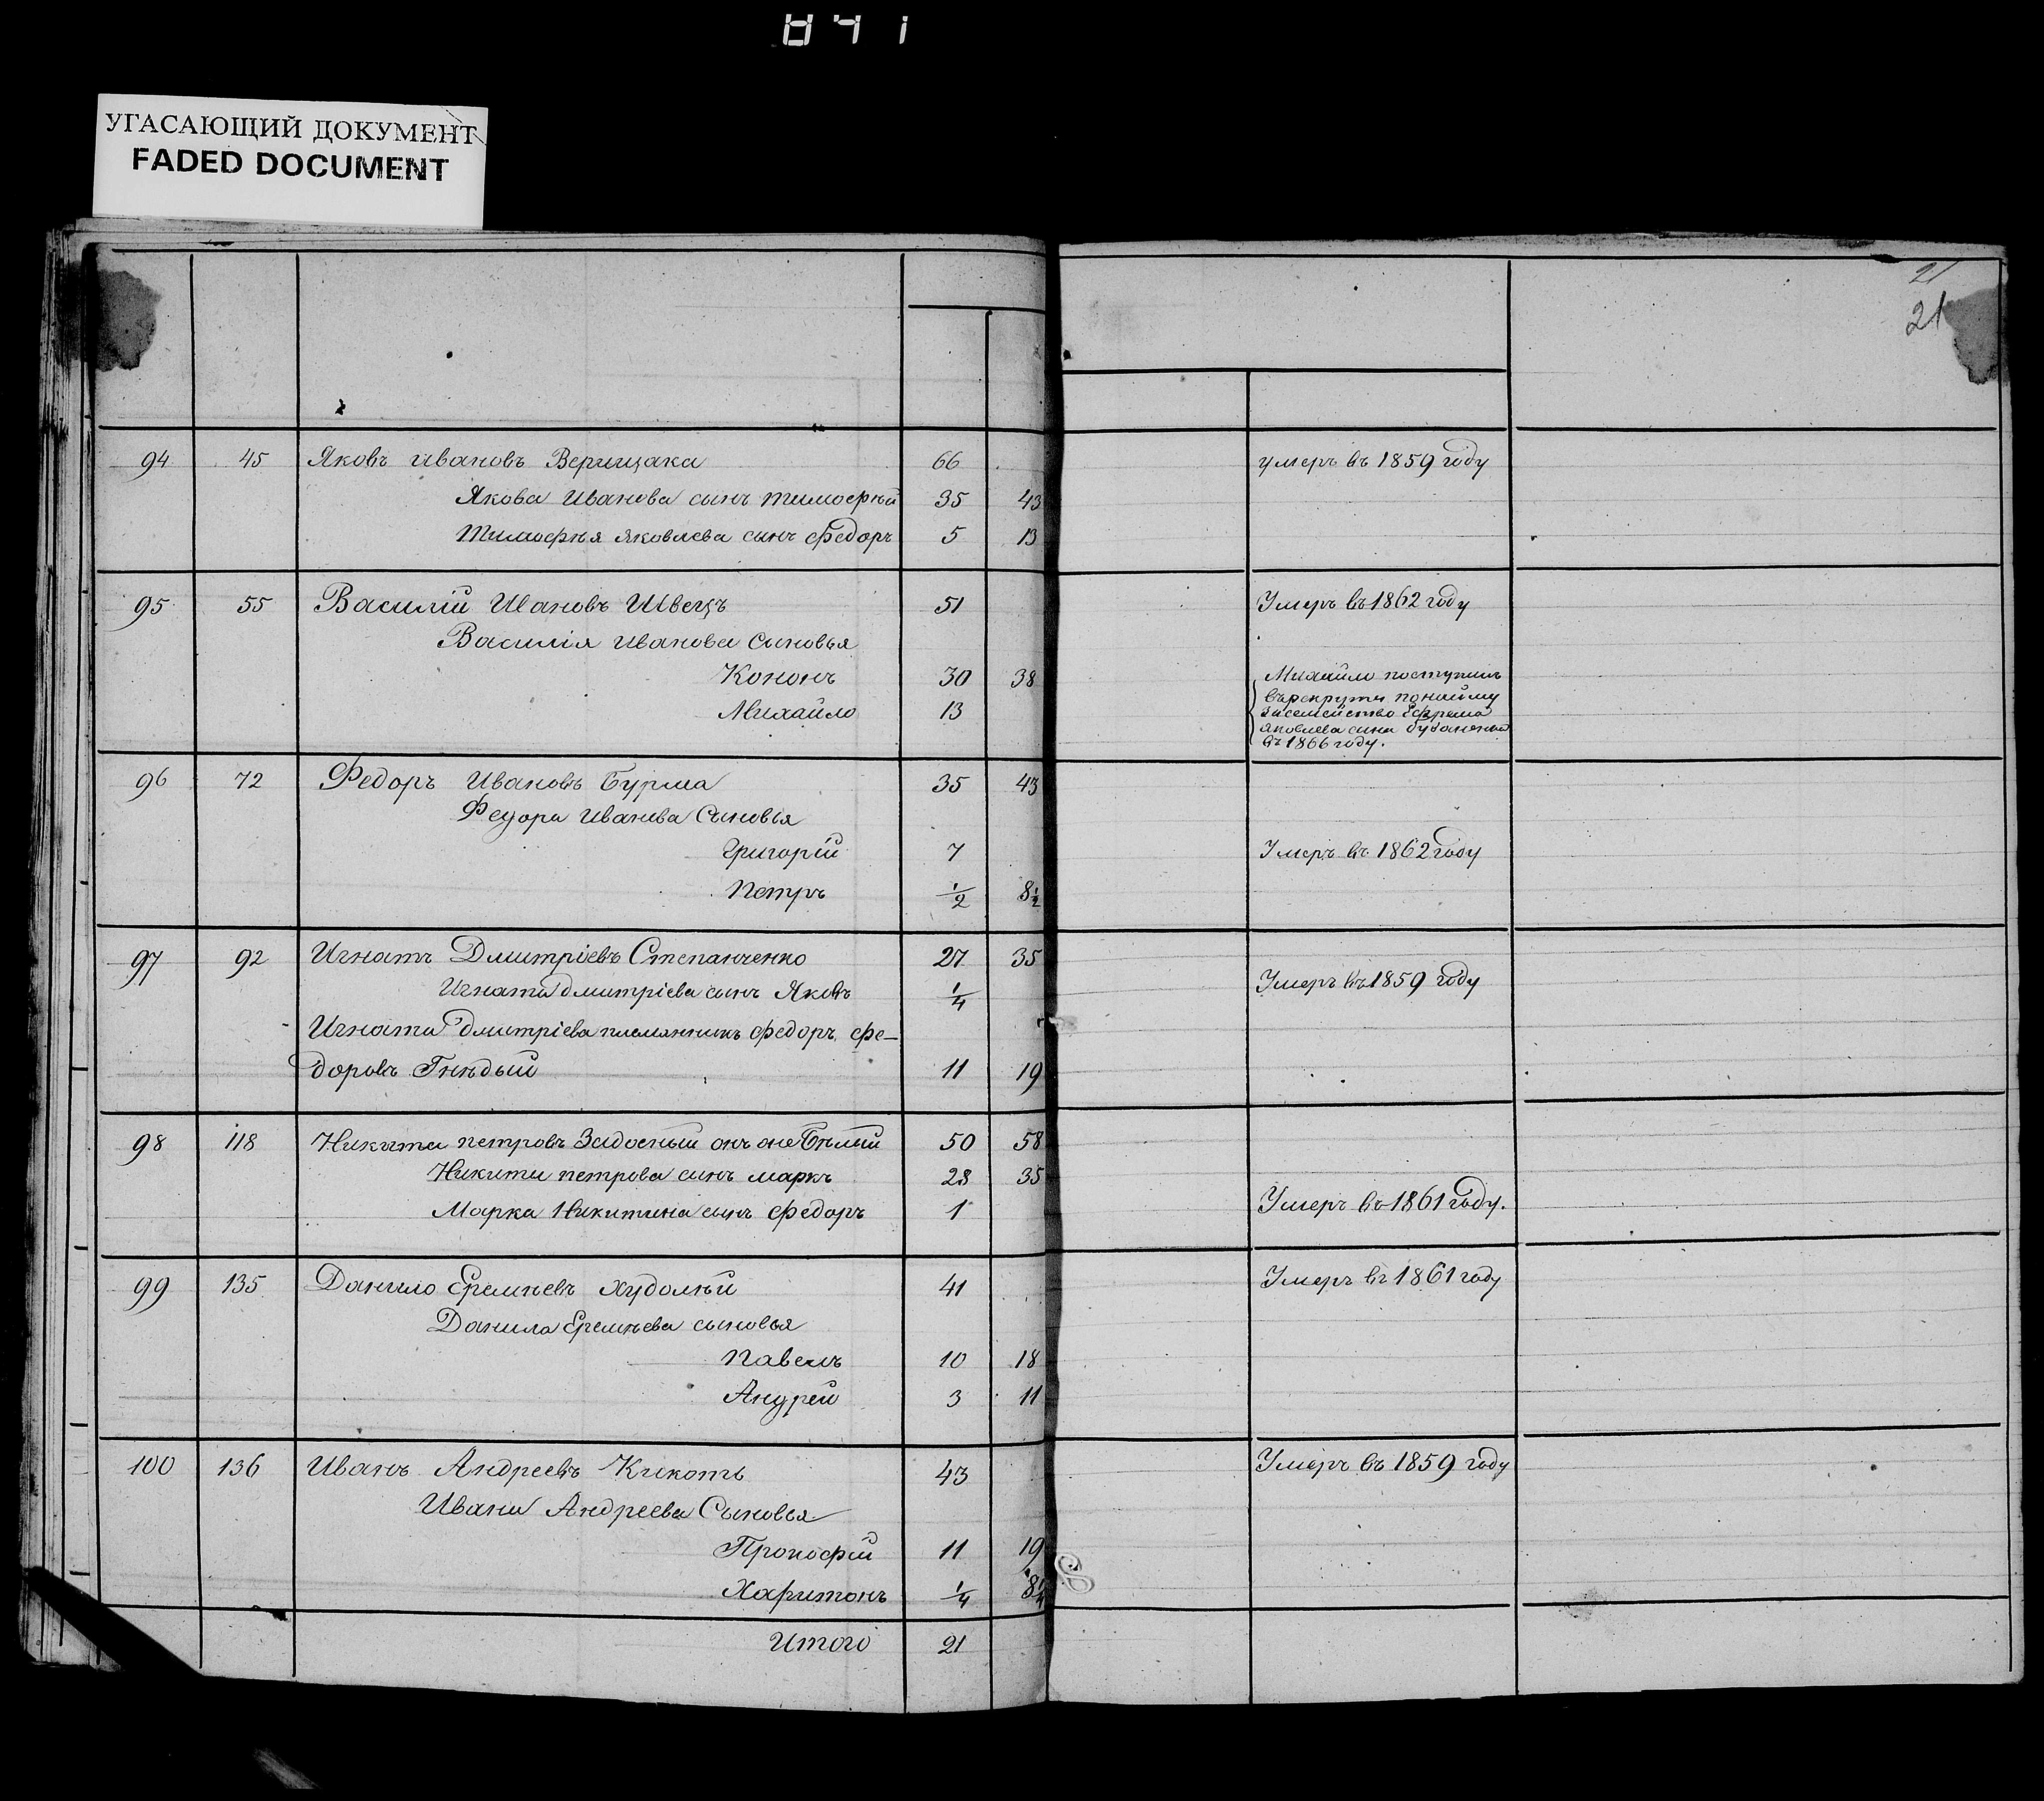 841
УГАСАЮЩИЙ ДОКУМЕНТ
FADED DOCUMENT
21
21
94 45 Яковъ Ивановъ Верищака 66 умеръ въ 1859 году
Якова Иванова сынъ тимофѣй 35 43
Тимофѣя Яковлева сынъ Федоръ 5 13
95 55 Василій Ивановъ Швецъ 51 Умеръ въ 1862 году
Василія Иванова Сыновья
Кононъ 30 38
Михайло 13
Михайло поступилъ
въ рекруты по найму
за семейство Ефрема
Яковлева сына
въ 1866 году.
96 72 Федоръ Ивановъ Бурма 35 43
Федора Иванова Сыновья
Григорій 7 Умеръ въ 1862 году
Петръ 1/2 8 1/2
97 92 Игнатъ Дмитріевъ Степанченко 27 35
Игната дмитріева сынъ Яковъ 1/4 Умеръ въ 1859 году
Игната Дмитріева племянникъ Федоръ Фе-
доровъ Гнѣдый 11 19
98 118 Никита петровъ онъ же Бѣлый 50 58
Никиты петрова сынъ маркъ 28 35
Марка Никитина сынъ Федоръ 1 Умеръ въ 1861 году.
99 135 Данило Еремѣевъ Худолѣй 41 Умеръ въ 1861 году
Данила Еремѣева сыновья
Павелъ 10 18
Андрей 3 11
100 136 Иванъ Андреевъ Кикоть 43 Умеръ въ 1859 году
Ивана Андреева Сыновья
Прокофій 11 19
Харитонъ 1/4 8 1/4
Итого 21